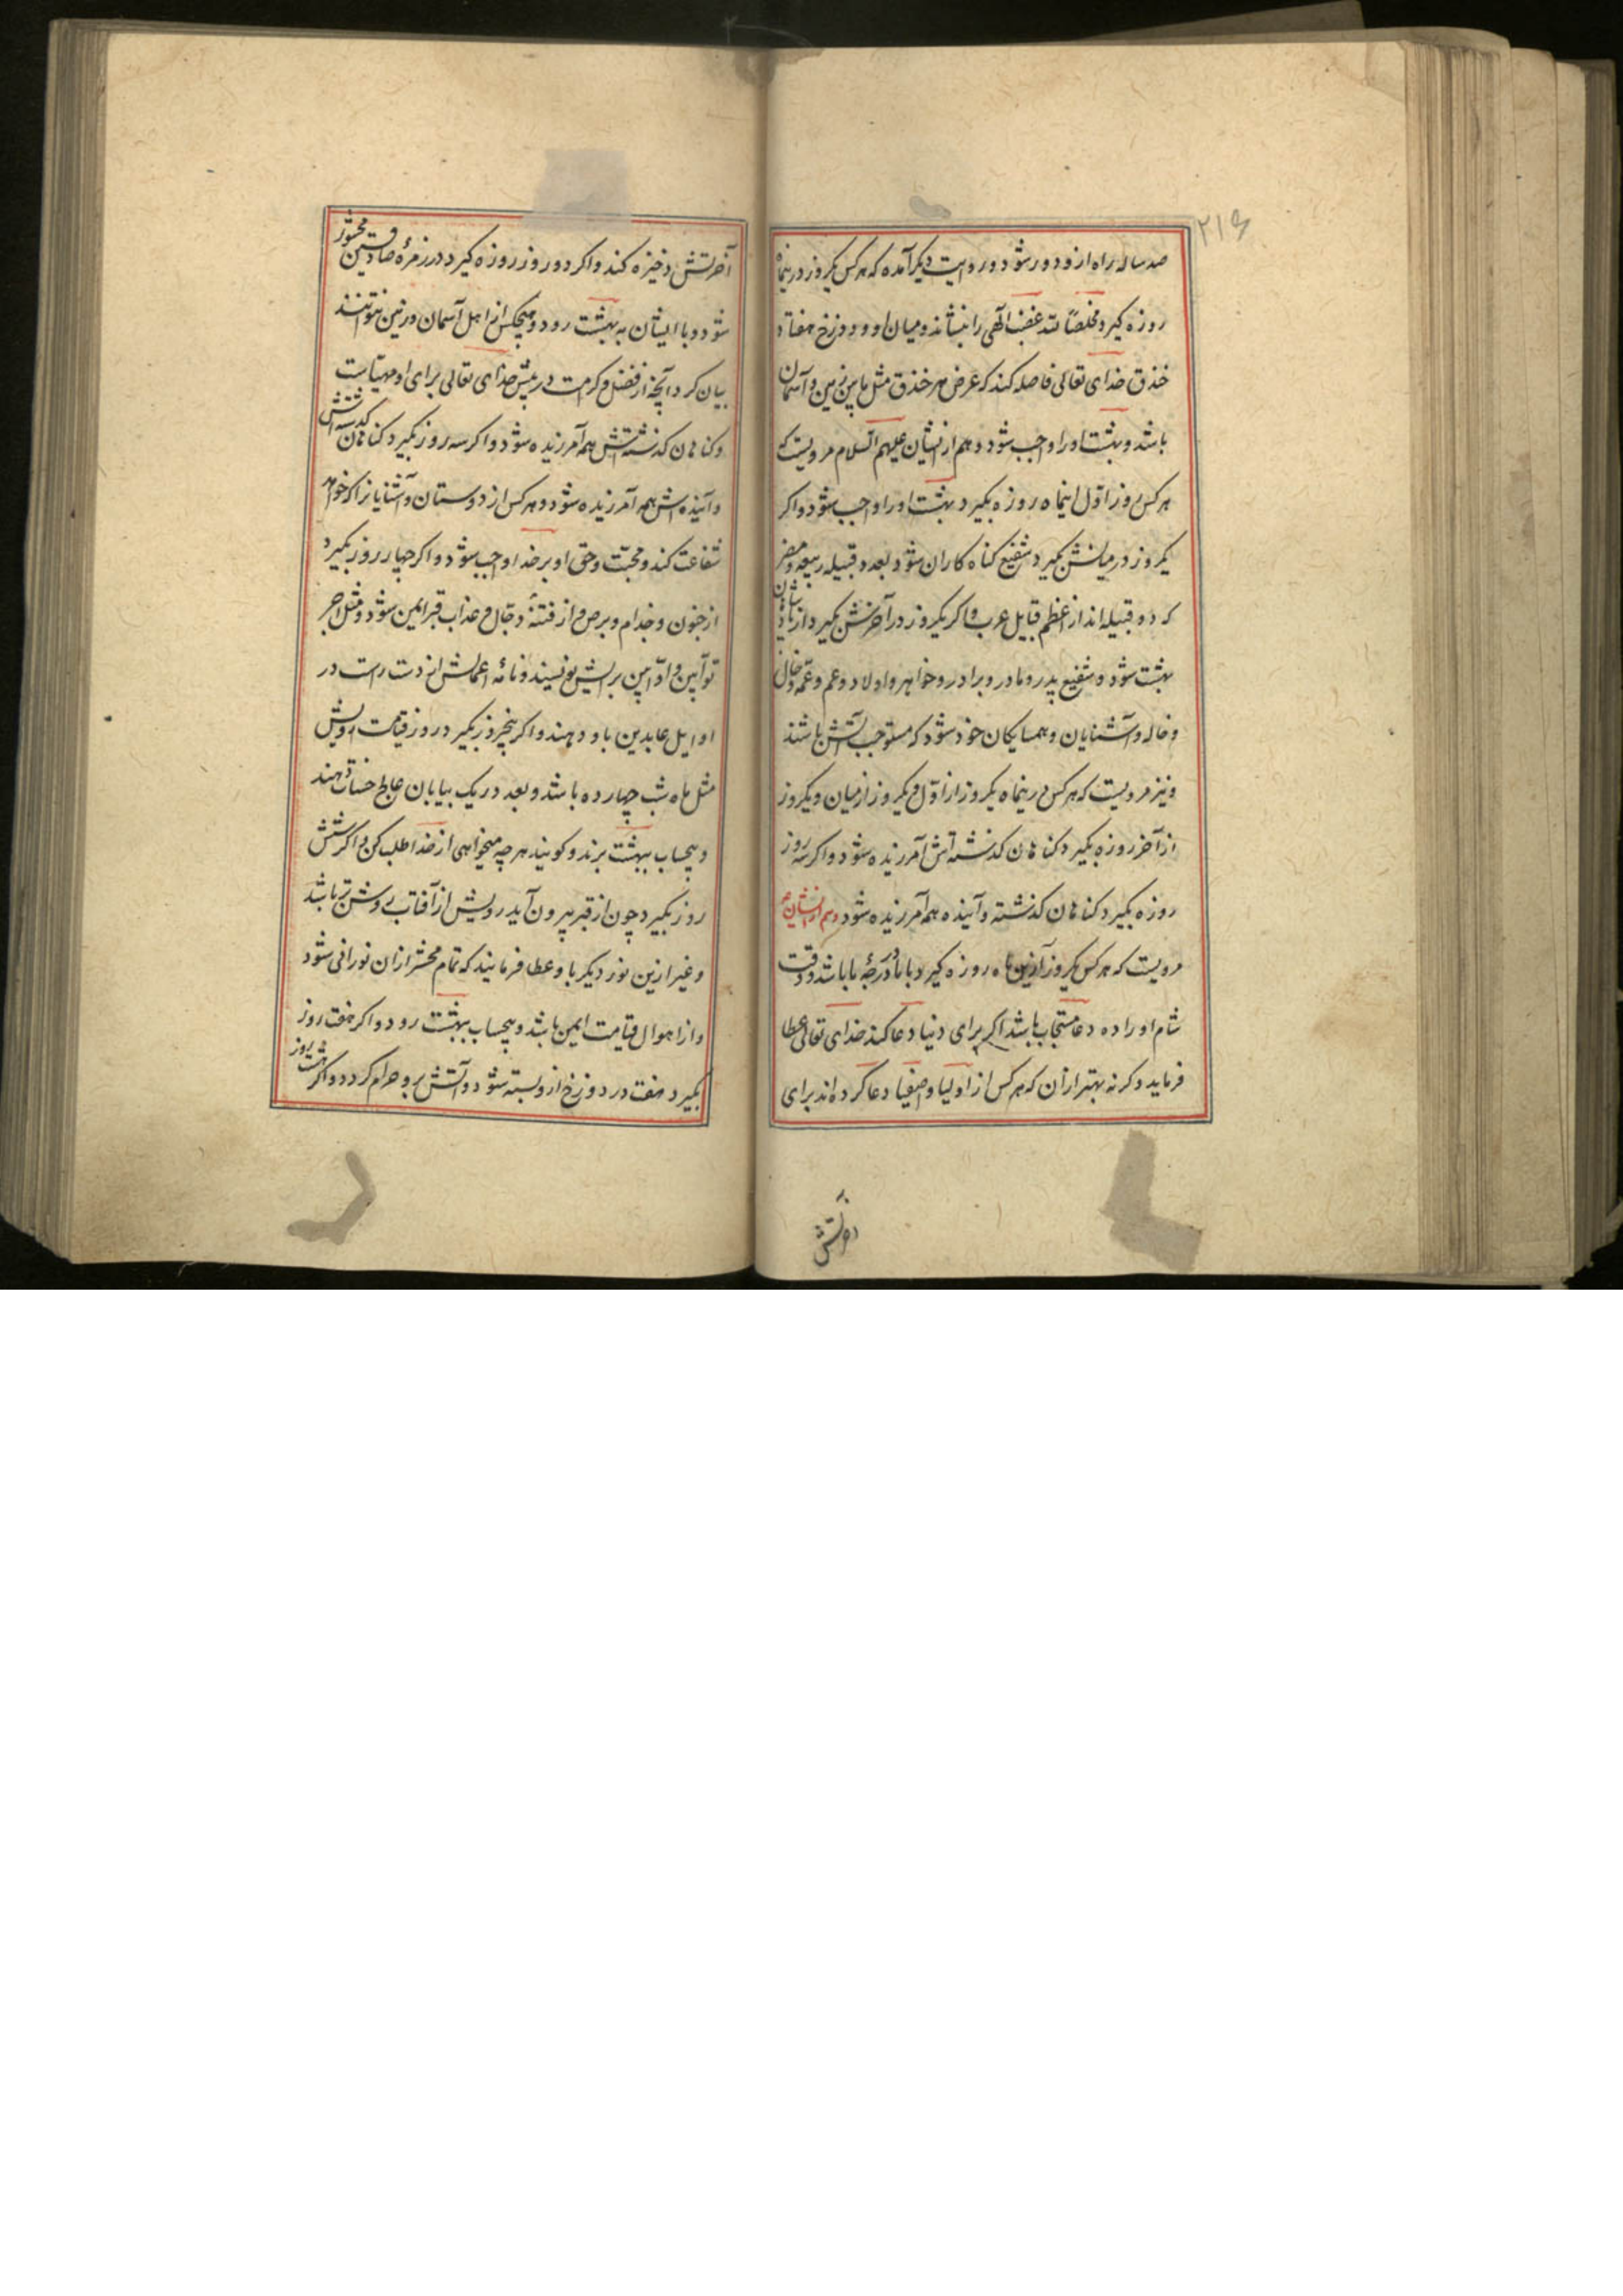 ۲۱۶
صد ساله راه ازو دور شود و روایت دیکر آمده که هر کس یکروز درینماه
روزه کیرد مخلصًا لله غضب الهی را بنشاند و میان او و دوزخ هفتاد
خندق خدای تعالی فاصله کند که عرض هر خندق مثل مابین زمین و آسمان
باشد و بهشت او را واجب شود و هم از ایشان علیهم السلام مرویست که
هر کس روز اوّل اینماه روزه بکیرد بهشت او را واجب شود و اکر
یکروز در میانش بکیرد شفیع کناه کاران شود بعدد قبیله ربیعه و مضر
که دو قبیله اند از اعظم قبایل عرب و اکر یکروز در آخرش بکیرد از پادشاهان
بهشت شود و شفیع پدر و مادر و برادر و خواهر و اولاد و عم و عمّه و خال
و خاله و آشنایان و همسایکان خود شود که مستوجب آتش باشند
و نیز مرویست که هر کس درینماه یکروز از اوّل و یکروز از میان و یکروز
از آخر روزه بکیرد کناهان کذشته اش آمرزیده شود و اکر سه روز
روزه بکیرد کناهان کذشته و آینده همه آمرزیده شود و هم از ایشان ع
مرویست که هر کس یکروز ازین ماه روزه کیرد با ما در درجهٔ ما باشد و وقت
شام او را ده دعا مستجاب باشد اکر برای دنیا دعا کند خدای تعالی عطا
فرماید و کرنه بهتر از آن که هر کس از اولیا و اصفیا دعا کرده اند برای
آخرتش
آخرتش ذخیره کند و اکر دو روز روزه کیرد در زمرهٔ صادقین محشور
شود و با ایشان به بهشت رود و هیچکس از اهل آسمان و زمین نتوانند
بیان کرد آنچه از فضل و کرامت در پیش خدای تعالی برای او مهیّاست
و کناهان کذشتتش همه آمرزیده شود و اکر سه روز بکیرد کناهان کذشته اش
و آینده اش همه آمرزیده شود و هر کس از دوستان و آشنایانرا که خواهد
شفاعت کند و محبّت و حق او بر خدا واجب شود و اکر چهار روز بکیرد
از جنون و جذام و برص و از فتنهٔ دجال و عذاب قبر ایمن شود و مثل اجر
توابین و اوابین برایش نویسند و نامهٔ اعمالش از دست راست در
اوایل عابدین باو دهند و اکر پنجروز بکیرد در روز قیامت رویش
مثل ماه شب چهارده باشد و بعدد ریک بیابان عالج حسنات دهند
و بیحساب ببهشت برند و کویند هر چه میخواهی از خدا طلب کن و اکر شش
روز بکیرد چون از قبر بیرون آید رویش از آفتاب روشن تر باشد
و غیر ازین نور دیکر باو عطا فرمایند که تمام محشر از ان نورانی شود
و از اهوال قیامت ایمن باشد و بیحساب ببهشت رود و اکر هفت روز
بکیرد هفت در دوزخ از و بسته شود و آتش بر و حرام کردد و اکر هشت روز